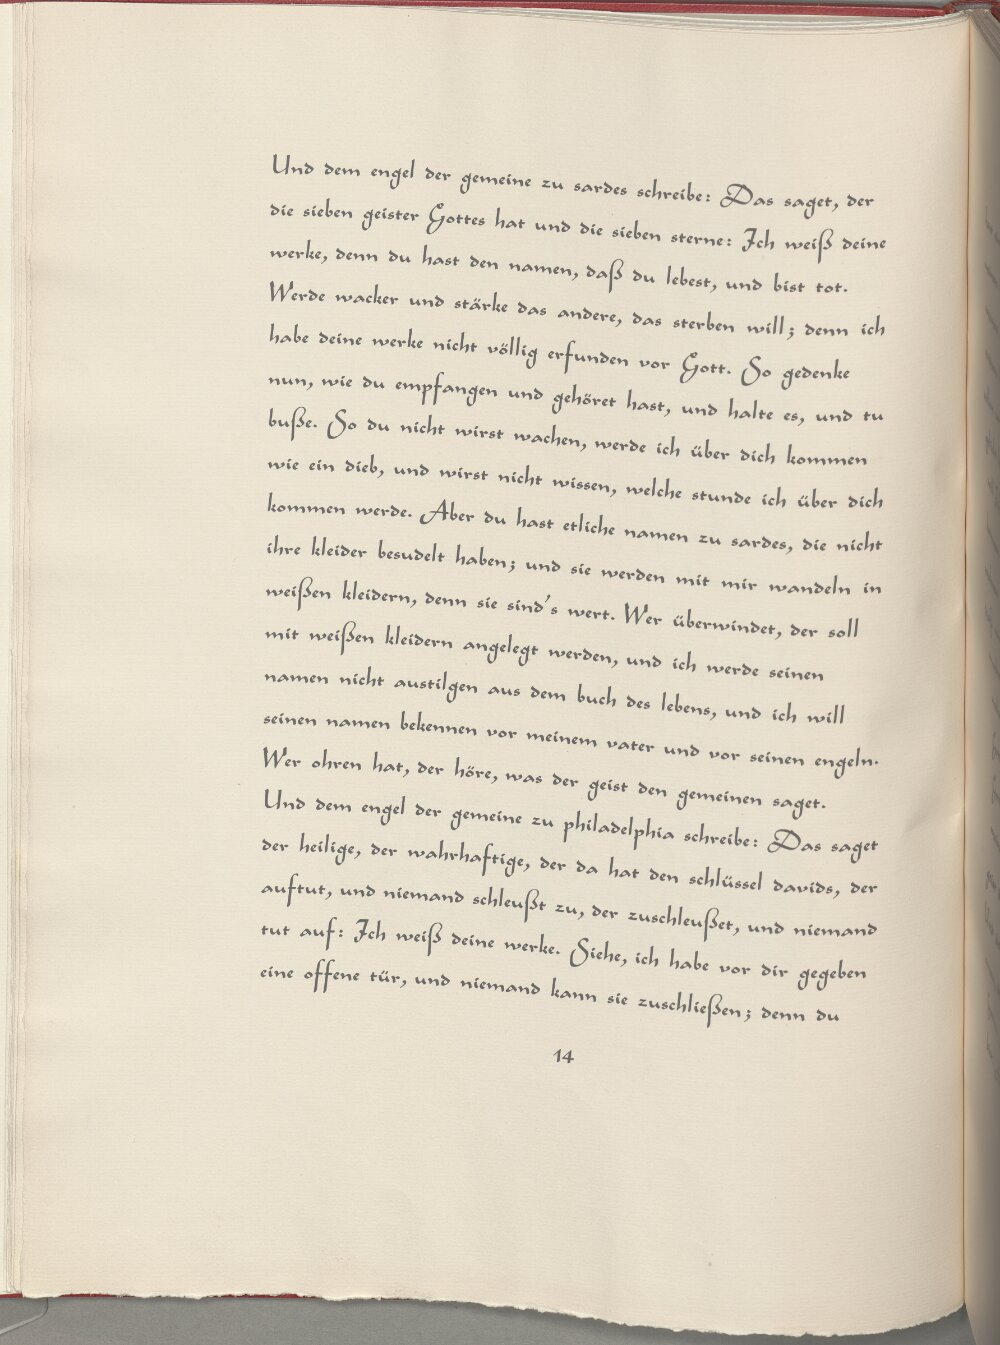 Und dem engel der gemeine zu sardes schreibe: Das saget, der
die sieben geister Gottes hat und die sieben sterne: Ich weiß deine
werke, denn du hast den namen, daß du lebest, und bist tot.
Werde wacker und stärke das andere, das sterben will; denn ich
habe deine werke nicht völlig erfunden vor Gott. So gedenke
nun, wie du empfangen und gehöret hast, und halte es, und tu
buße. So du nicht wirst wachen, werde ich über dich kommen
wie ein dieb, und wirst nicht wissen, welche stunde ich über dich
kommen werde. Aber du hast etliche namen zu sardes, die nicht
ihre kleider besudelt haben; und sie werden mit mir wandeln in
weißen kleidern, denn sie sind's wert. Wer überwindet, der soll
mit weißen kleidern angelegt werden, und ich werde seinen
namen nicht austilgen aus dem buch des lebens, und ich will
seinen namen bekennen vor meinem vater und vor seinen engeln.
Wer ohren hat, der höre, was der geist den gemeinen saget.
Und dem engel der gemeine zu philadelphia schreibe: Das saget
der heilige, der wahrhaftige, der da hat den schlüssel davids, der
auftut, und niemand schleußt zu, der zuschleußet, und niemand
tut auf: Ich weiß deine werke. Siehe, ich habe vor dir gegeben
eine offene tür, und niemand kann sie zuschließen; denn du
14